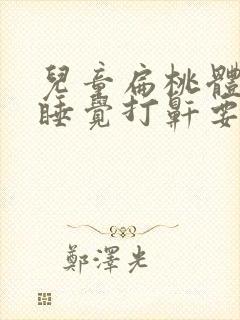 兒童扁桃體
睡覺打鼾要
鄭澤光